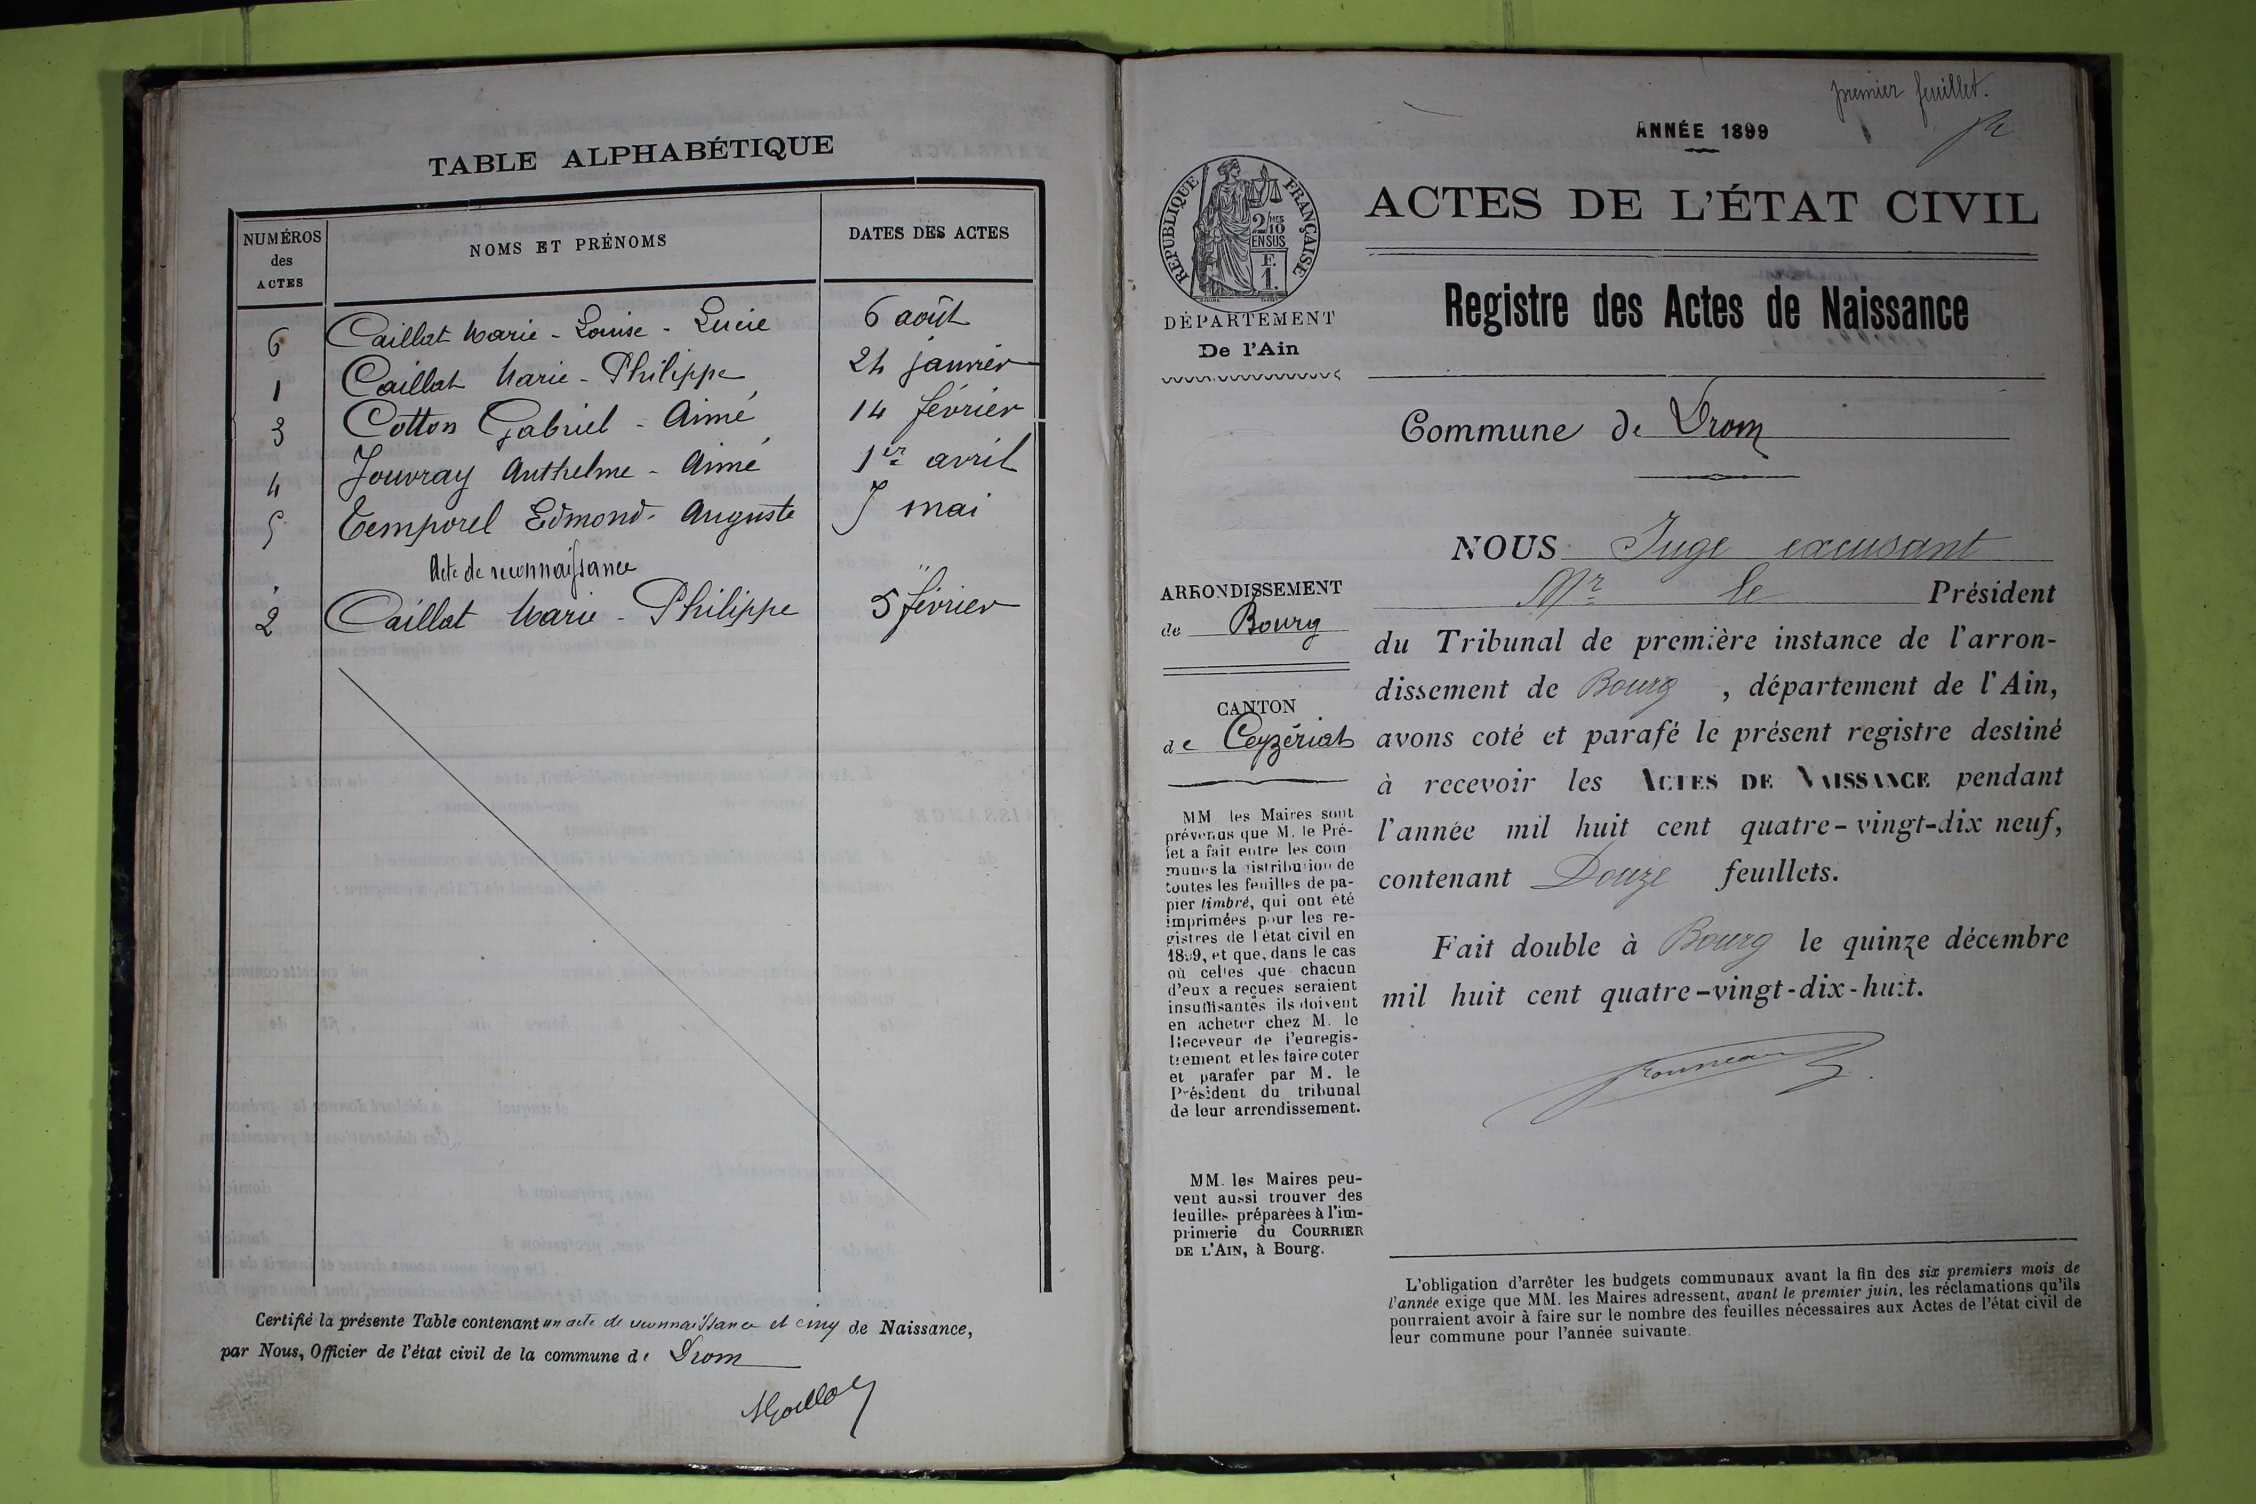 TABLE ALPHABÉTIQUE
NUMÉROS des ACTES
NOMS ET PRÉNOMS
DATES DES ACTES
6 Caillat Marie - Louise - Lucie 6 août
1 Caillat Marie - Philippe 24 janvier
3 Cotton Gabriel - Aimé 14 février
4 Jouvray Anthelme - Aimé 1er avril
5 Temporel Edmond - Auguste 7 mai
Acte de reconnaissance "
2 Caillat Marie - Philippe 5 février
Certifié la présente Table contenant un acte de reconnaissance et cinq de Naissance,
par Nous, Officier de l'état civil de la commune de Drom
premier feuillet.
ANNÉE 1899
RÉPUBLIQUE FRANÇAISE
2/10 MES
EN SUS
F.
1.
DÉPARTEMENT
De l'Ain
ACTES DE L'ÉTAT CIVIL
Registre des Actes de Naissance
Commune de Drom
ARRONDISSEMENT
de Bourg
CANTON
de Ceyzériat
MM les Maires sont
prévenus que M. le Pré-
fet a fait entre les com
munes la distribution de
toutes les feuilles de pa-
pier timbré, qui ont été
imprimées pour les re-
gistres de l'état civil en
1899, et que, dans le cas
où celles que chacun
d'eux a reçues seraient
insuffisantes ils doivent
en acheter chez M. le
Receveur de l'enregis-
trement et les faire coter
et parafer par M. le
Président du tribunal
de leur arrondissement.
MM. les Maires peu-
vent aussi trouver des
feuilles préparées à l'im-
primerie du COURRIER
DE L'AIN, à Bourg.
NOUS Juge excusant
Mr le Président
du Tribunal de première instance de l'arron-
dissement de Bourg , département de l'Ain,
avons coté et parafé le présent registre destiné
à recevoir les ACTES DE NAISSANCE pendant
l'année mil huit cent quatre-vingt-dix neuf,
contenant Douze feuillets.
Fait double à Bourg le quinze décembre
mil huit cent quatre-vingt-dix-huit.
L'obligation d'arrêter les budgets communaux avant la fin des six premiers mois de
l'année exige que MM. les Maires adressent, avant le premier juin, les réclamations qu'ils
pourraient avoir à faire sur le nombre des feuilles nécessaires aux Actes de l'état civil de
leur commune pour l'année suivante.